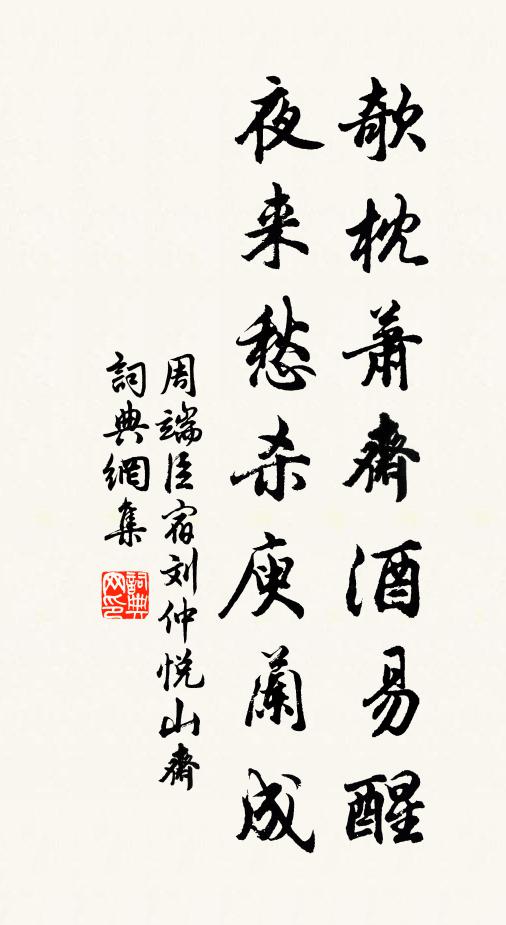 欹枕萧斋酒易醒
夜来愁杀庾兰成
周端臣宿刘仲悦山斋
詞典網集
詞典网印